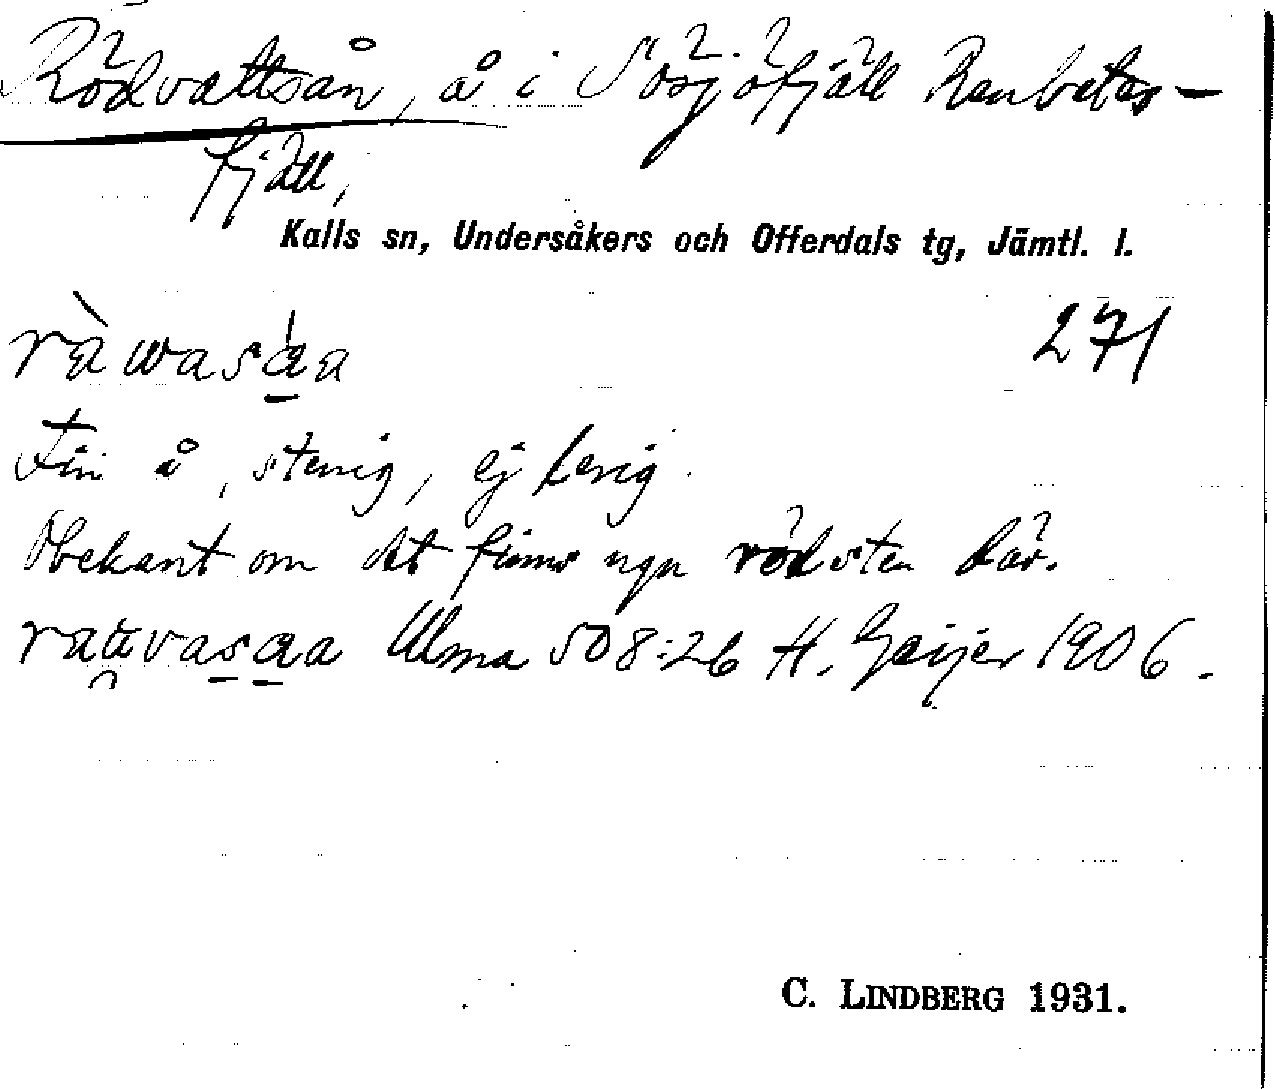 Rödvattsån, å i Sösjöfjäll Renbetes-
fjäll,
Kalls sn, Undersåkers och Offerdals tg, Jämtl. l.
ràwasa̱a 271
Fin å, stenig, ej
Obekant om det finns ngn rödsten där.
Ulma 508:26 H. Geijer 1906.
C. LINDBERG 1931.